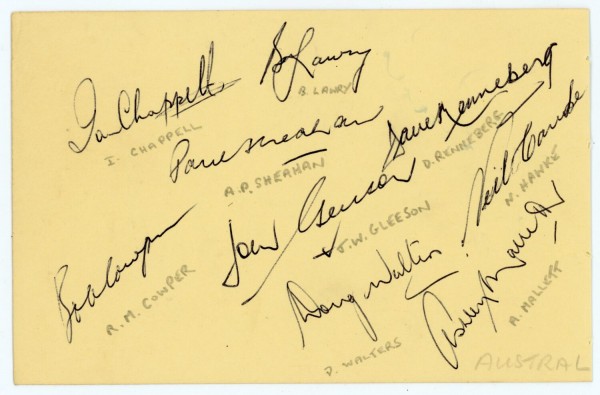 Ian Chappell
B Lawry
B. LAWRY
I. CHAPPELL
Paul Sheahan
A.P. SHEAHAN
Dave Renneberg
D. RENNEBERG
Neil Hawke
N. HAWKE
John Gleeson
J.W. GLEESON
Bob Cowper
R.M. COWPER
Doug Walters
D. WALTERS
Ashley Mallett
A. MALLETT
AUSTRAL